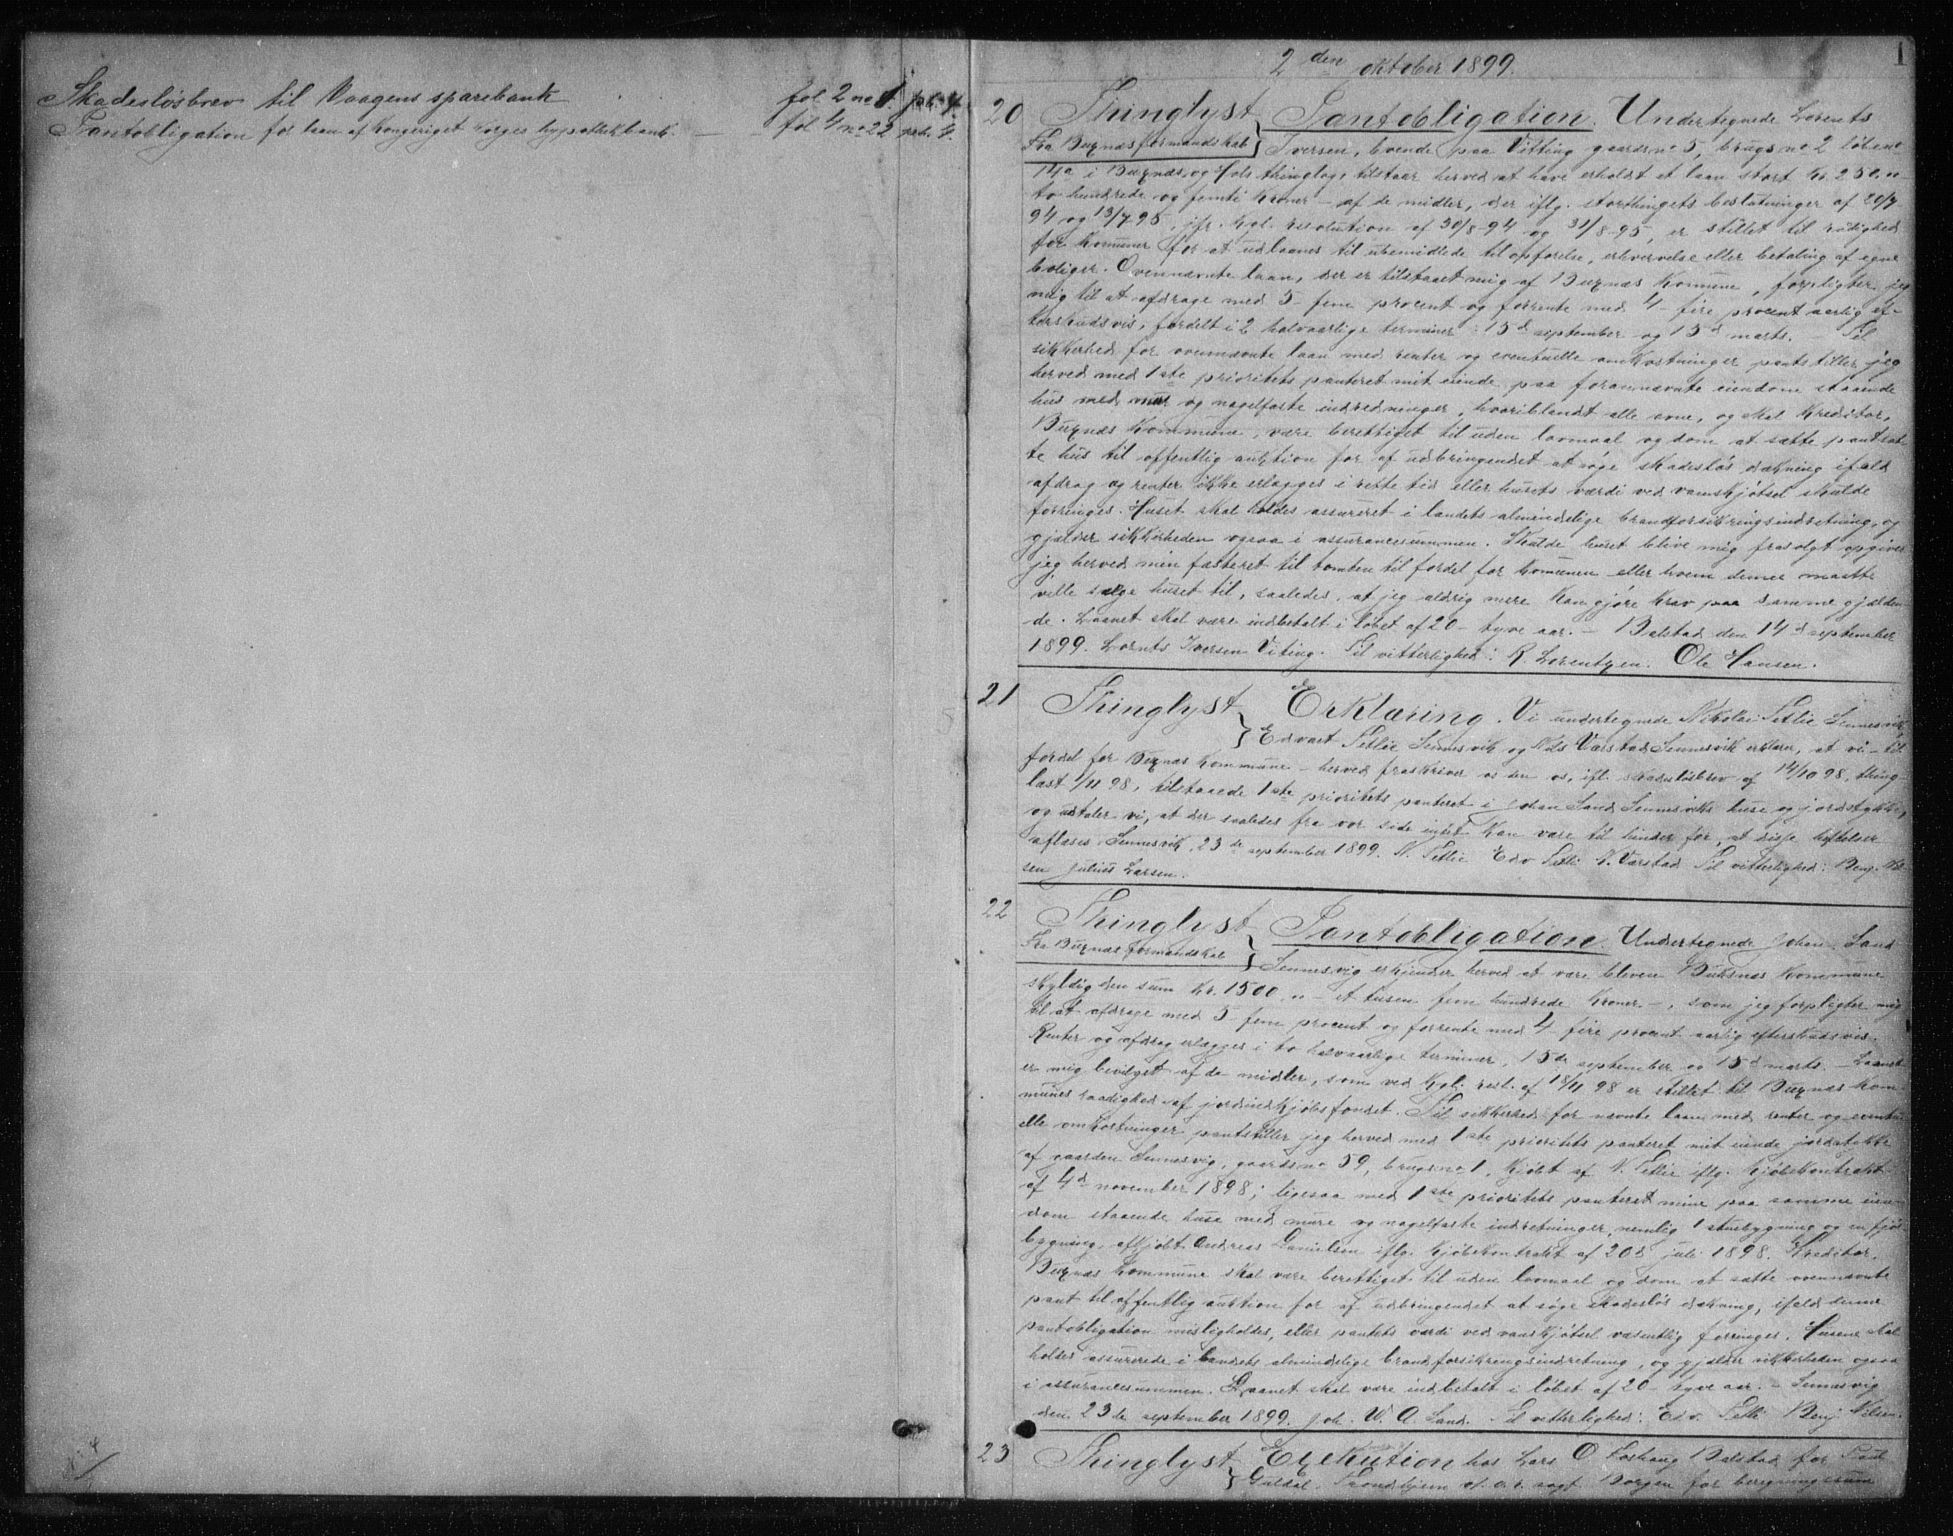 Skadesløsbrev til Vaagens sparebank fol 2 no 1. pr. 4.
Pantobligation for laan af Kongeriget Norges hypothekbank. — fol 4 no 22 pr. 4.
1
2den oktober 1899.
20 Thinglyst Pantobligation. Undertegnede Lorents
Fra Buxnæs formandskab Iversen, boende paa Vitting gaardsno 5, brugsno 2 løbeno
14a i Buxnæs og Hols thinglag, tilstaar herved at have erholdt et laan stort kr. 250.
to hundrede og femti kroner – af de midler, der iflg. storthingets beslutninger af 20/7
94 og 13/7 95, jfr. kgl. resolution af 30/8-94 og 31/8-95, er stillet til raadighed
for kommuner for at udlaanes til ubemidlede til opførelse, erhvervelse eller betaling af egne
boliger. Ovennævnte laan, der er tilstaaet mig af Buxnæs kommune, forpligter jeg
mig til at afdrage med 5 – fem procent og forrente med 4 – fire procent aarlig ef-
terskudsvis, fordelt i 2 halvaarlige terminer: 15d september og 15d marts. – Til
sikkerhed for ovennævnte laan med renter og eventuelle omkostninger pantstiller jeg
herved med 1ste prioritets panteret mit eiende paa forannævnte eiendom staaende
hus med mur og nagelfaste indredninger, hvoriblandt alle ovne, og skal kreditor,
Buxnæs kommune, være berettiget til uden lovmaal og dom at sætte pantsat-
te hus til offentlig auktion for af udbringendet at søge skadesløs dækning ifald
afdrag og renter ikke erlægges i rette tid eller husets værdi ved vanskjøtsel skulde
forringes. Huset skal holdes assureret i landets almindelige brandforsikringsindretning, og
gjælder sikkerheden ogsaa i assurancesummen. Skulde huset blive mig frasolgt opgiver
jeg herved min fæsteret til tomten til fordel for kommunen eller hvem denne maatte
ville sælge huset til, saaledes, at jeg aldrig mere kan gjøre krav paa samme gjælden-
de. Laanet skal være indbetalt i løbet af 20 – tyve aar. – Balstad den 14d september
1899. Lornts Iversen Viting. Til vitterlighed: R Lorentzen. Ole Hansen.
21 Thinglyst Erklæring. Vi undertegnede Nikolai Setlie Sennesvik,
Edvart Setlie Sennesvik og Nils Varstad Sennesvik erklærer, at vi – til
fordel for Buxnæs kommune – herved fraskriver vi den os, ifl. skadesløsbrev af 14/10 98, thing-
læst 1/11 98, tilstaaede 1ste prioritets panteret i Johan Sand Sennesviks huse og jordstykke,
og udtaler vi, at der saaledes fra vor side intet kan være til hinder for, at disse heftelser
aflæses. Sennesvik, 23de september 1899. N. Setlie Edv Setli N. Varstad Til vitterlighed: Benj. Nil-
sen Julius Larsen.
22 Thinglyst Pantobligation. Undertegnede Johan Sand
Fra Buxnæs formandskab Sennesvig erkjender herved at være bleven Buksnæs kommune
skyldig den sum kr. 1500 – et tusen fem hundrede kroner –, som jeg forpligter mig
til at afdrage med 5 – fem procent og forrente med 4 – fire procent aarlig efterskudsvis.
Renter og afdrag erlægges i to halvaarlige terminer, 15de september og 15d marts. – Laanet
er mig bevilget af de midler, som ved kgl. resl. af 18/11 98 er stillet til Buxnæs kom-
munes raadighed af jordindkjøbsfondet. Til sikkerhed for nævnte laan med renter og eventu-
elle omkostninger pantstiller jeg herved med 1ste prioritets panteret mit eiende jordstykke
af gaarden Sennesvig, gaardsno 59, brugsno 1, kjøbt af N. Setlie iflg. kjøbekontrakt
af 4d november 1898; ligesaa med 1ste prioritets panteret mine paa samme eien-
dom staaende huse med mure og nagelfaste indretninger, nemlig 1 stuebygning og en fjøs-
bygning, afkjøbt Andreas Danielsen iflg. kjøbekontrakt af 20d juli 1898. Kreditor,
Buxnæs kommune skal være berettiget til uden lovmaal og dom at sætte ovennævnte
pant til offentlig auktion for af udbringendet at søge skadesløs dækning, ifald denne
pantobligation misligholdes, eller pantets værdi ved vanskjøtsel væsentlig forringes. Husene skal
holdes assurerede i landets almindelige brandforsikringsindretning, og gjælder sikkerheden ogsaa
i assurancesummen. Laanet skal være indbetalt i løbet af 20 – tyve aar. – Sennesvig
den 23de september 1899. Joh. W. A. Sand. Til vitterlighed: Edv. Setli Benj Nilsen.
23 Thinglyst Exekution hos Lars O Foshaug Balstad for Paul
Guldal. Trondhjem af o. r. sagf. Borgen for beregningssum